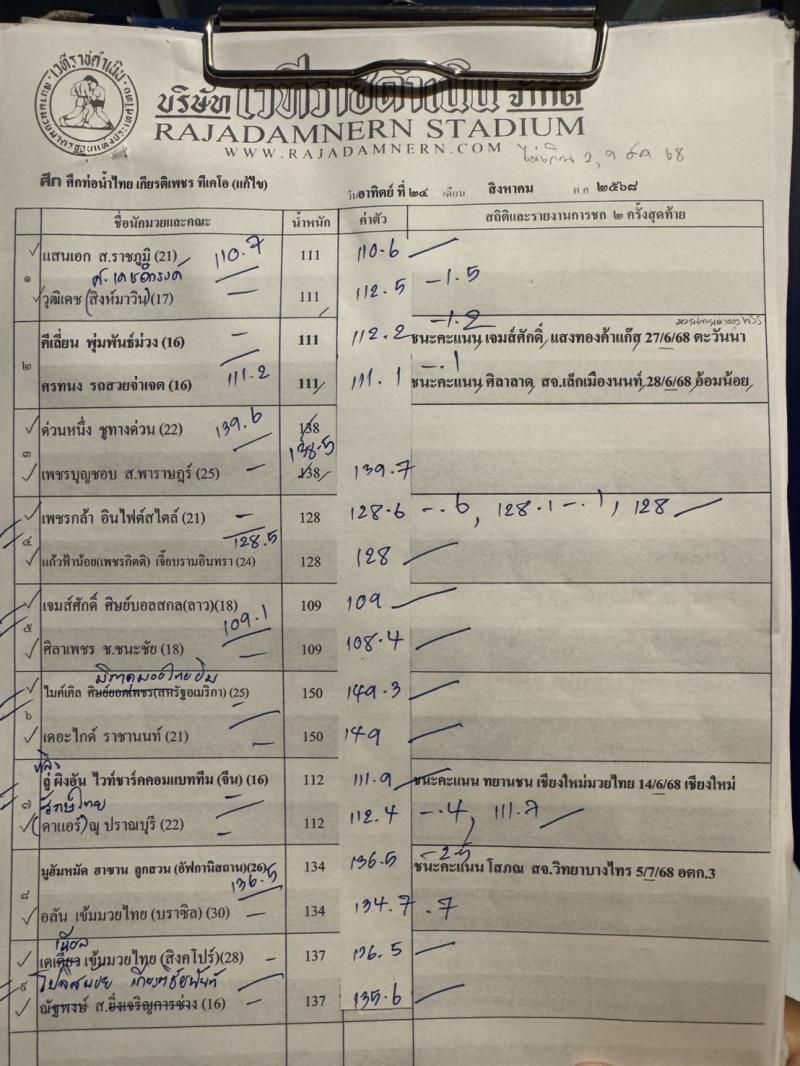 บริษัท เวทีราชดำเนิน จำกัด
RAJADAMNERN STADIUM
WWW.RAJADAMNERN.COM
ศึก ศึกท่อน้ำไทย เกียรติเพชร ทีเคโอ (แก้ไข) วันอาทิตย์ ที่ ๒๔ เดือน สิงหาคม พ.ศ ๒๕๖๘
ชื่อนักมวยและคณะ น้ำหนัก ค่าตัว สถิติและรายงานการชก ๒ ครั้งสุดท้าย
แสนเอก ส.ราชภูมิ (21) 110.7 111 110.6
๑
วุฒิเดช (สิงห์มาวิน) (17) 111 112.5 -1.5
-1.2
คีเลี่ยน พุ่มพันธ์ม่วง (16) 111 112.2 ชนะคะแนน เจมส์ศักดิ์ แสงทองค้าแก๊ส 27/6/68 ตะวันนา
๒
-.1
ศรทนง รถสวยจ่าเจต (16) 111.2 111 111.1 ชนะคะแนน ศิลาลาด สจ.เล็กเมืองนนท์ 28/6/68 อ้อมน้อย
ด่วนหนึ่ง ชูทางด่วน (22) 139.6 138
๓ 138.5
เพชรบุญชอบ ส.พาราษฎร์ (25) 138 139.7
เพชรกล้า อินไฟต์สไตล์ (21) 128 128.6 -.6, 128.1 -.1, 128
๔ 128.5
แก้วฟ้าน้อย(เพชรกิตติ) เจี๊ยบรามอินทรา (24) 128 128
เจมส์ศักดิ์ ศิษย์บอสสกล(ลาว)(18) 109 109
๕ 109.1
ศิลาเพชร ช.ชนะชัย (18) 109 108.4
ไมค์เคิล ศิษย์ยอดเพชร(สหรัฐอเมริกา) (25) 150 149.3
๖
เดอะไกด์ ราชานนท์ (21) 150 149
ลู่ ผิงอัน ไวท์ชาร์คคอมแบททีม (จีน) (16) 112 111.9 ชนะคะแนน ทยานชน เชียงใหม่มวยไทย 14/6/68 เชียงใหม่
๗ รักษ์ไทย
(ดาแอร์) ณุ ปราณบุรี (22) 112 112.4 -.4, 111.7
-2.5
มูฮัมหมัด ฮาซาน ลูกสวน (อัฟกานิสถาน)(26) 134 136.5 ชนะคะแนน โสภณ สจ.วิทยาบางไทร 5/7/68 อตก.3
๘ 136.5
อลัน เข้มมวยไทย (บราซิล) (30) 134 134.7 .7
เคเดี่ยว เข้มมวยไทย (สิงคโปร์)(28) 137 136.5
๙
ณัฐพงษ์ ส.ยิ่งเจริญการช่าง (16) 137 135.6